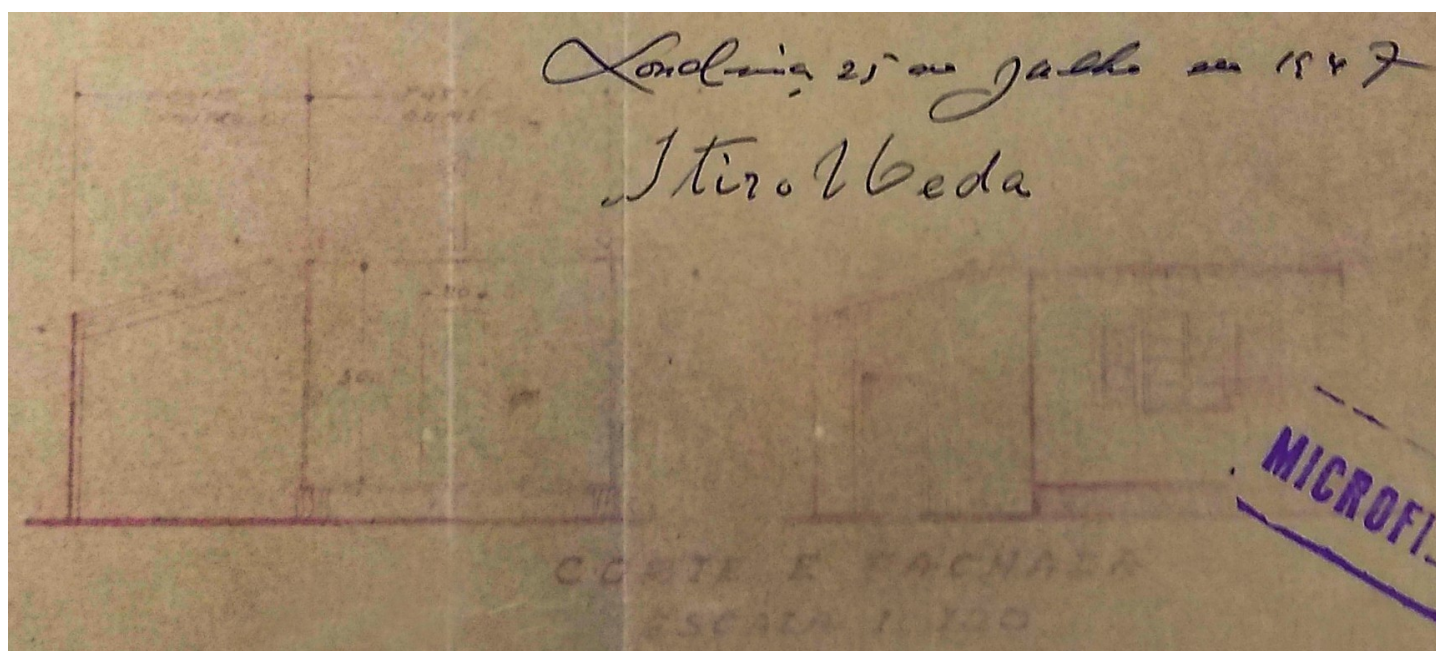 Londrina, 25 de Julho de 1947
Itiro Ueda
CORTE E FACHADA
ESCALA 1:100
MICROFI